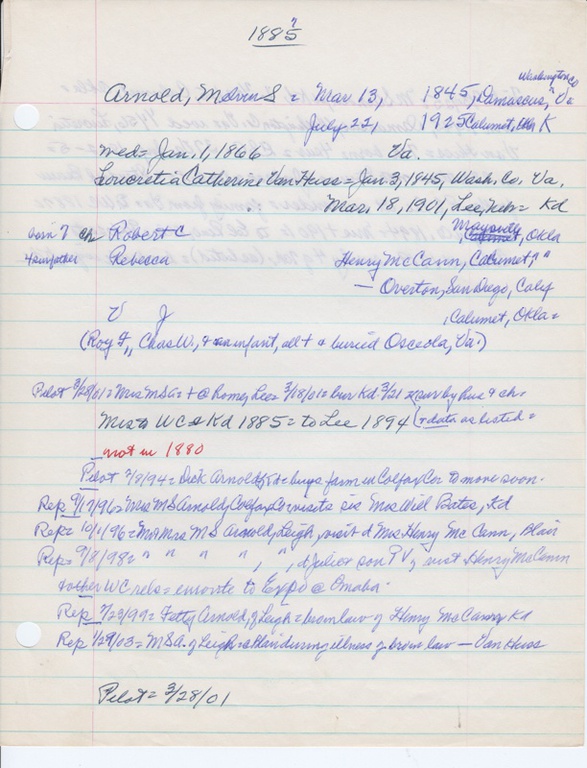 1885 ?
Washington Co
Arnold, Melvin S = Mar 13, 1845, Damascus, " Va
July 22, 1925 Calumet, Okla K
wed = Jan. 1, 1866 Va.
Loucretia Catherine Van Huss = Jan 3, 1845, Wash. Co. Va.
Mar. 18, 1901, Lee, Neb = Kd
born 7 ch Robert C Maysville, Okla
4 surv father Rebecca Henry McCann, Calumet, " "
— Overton, San Diego, Calif
V J , Calumet, Okla =
(Roy F,, Chas W., + an infant, all + & buried Osceola, Va.)
Pilot 3/28/01 = Mrs MSA = + @ Home, Lee = 3/18/01 = bur Kd. 3/21 surv by hus & ch.
Mrs to WC @ Kd 1885 = to Lee 1894 (+ data as listed =
not in 1880
Pilot 2/8/94 = Dick Arnold, Kd = buys farm in Colfax Co. to move soon.
Rep 9/17/96 = Mrs MS Arnold, Colfax Co visits sis Mrs Will Bates, Kd
Rep = 10/1/96 = Mr Mrs M S Arnold, Leigh, visit d Mrs Henry Mc Cann, Blair
Rep = 9/8/98 = " " " " , " , d Juliet & son P V, visit Henry McCann
+ other WC rels = enroute to Expo @ Omaha.
Rep 7/29/99 = Fetty Arnold, of Leigh = bro in law of Henry McCann, Kd
Rep 1/29/03 = MSA. of Leigh = @ Blair during illness of bro in law — Van Huss
Pilot = 3/28/01